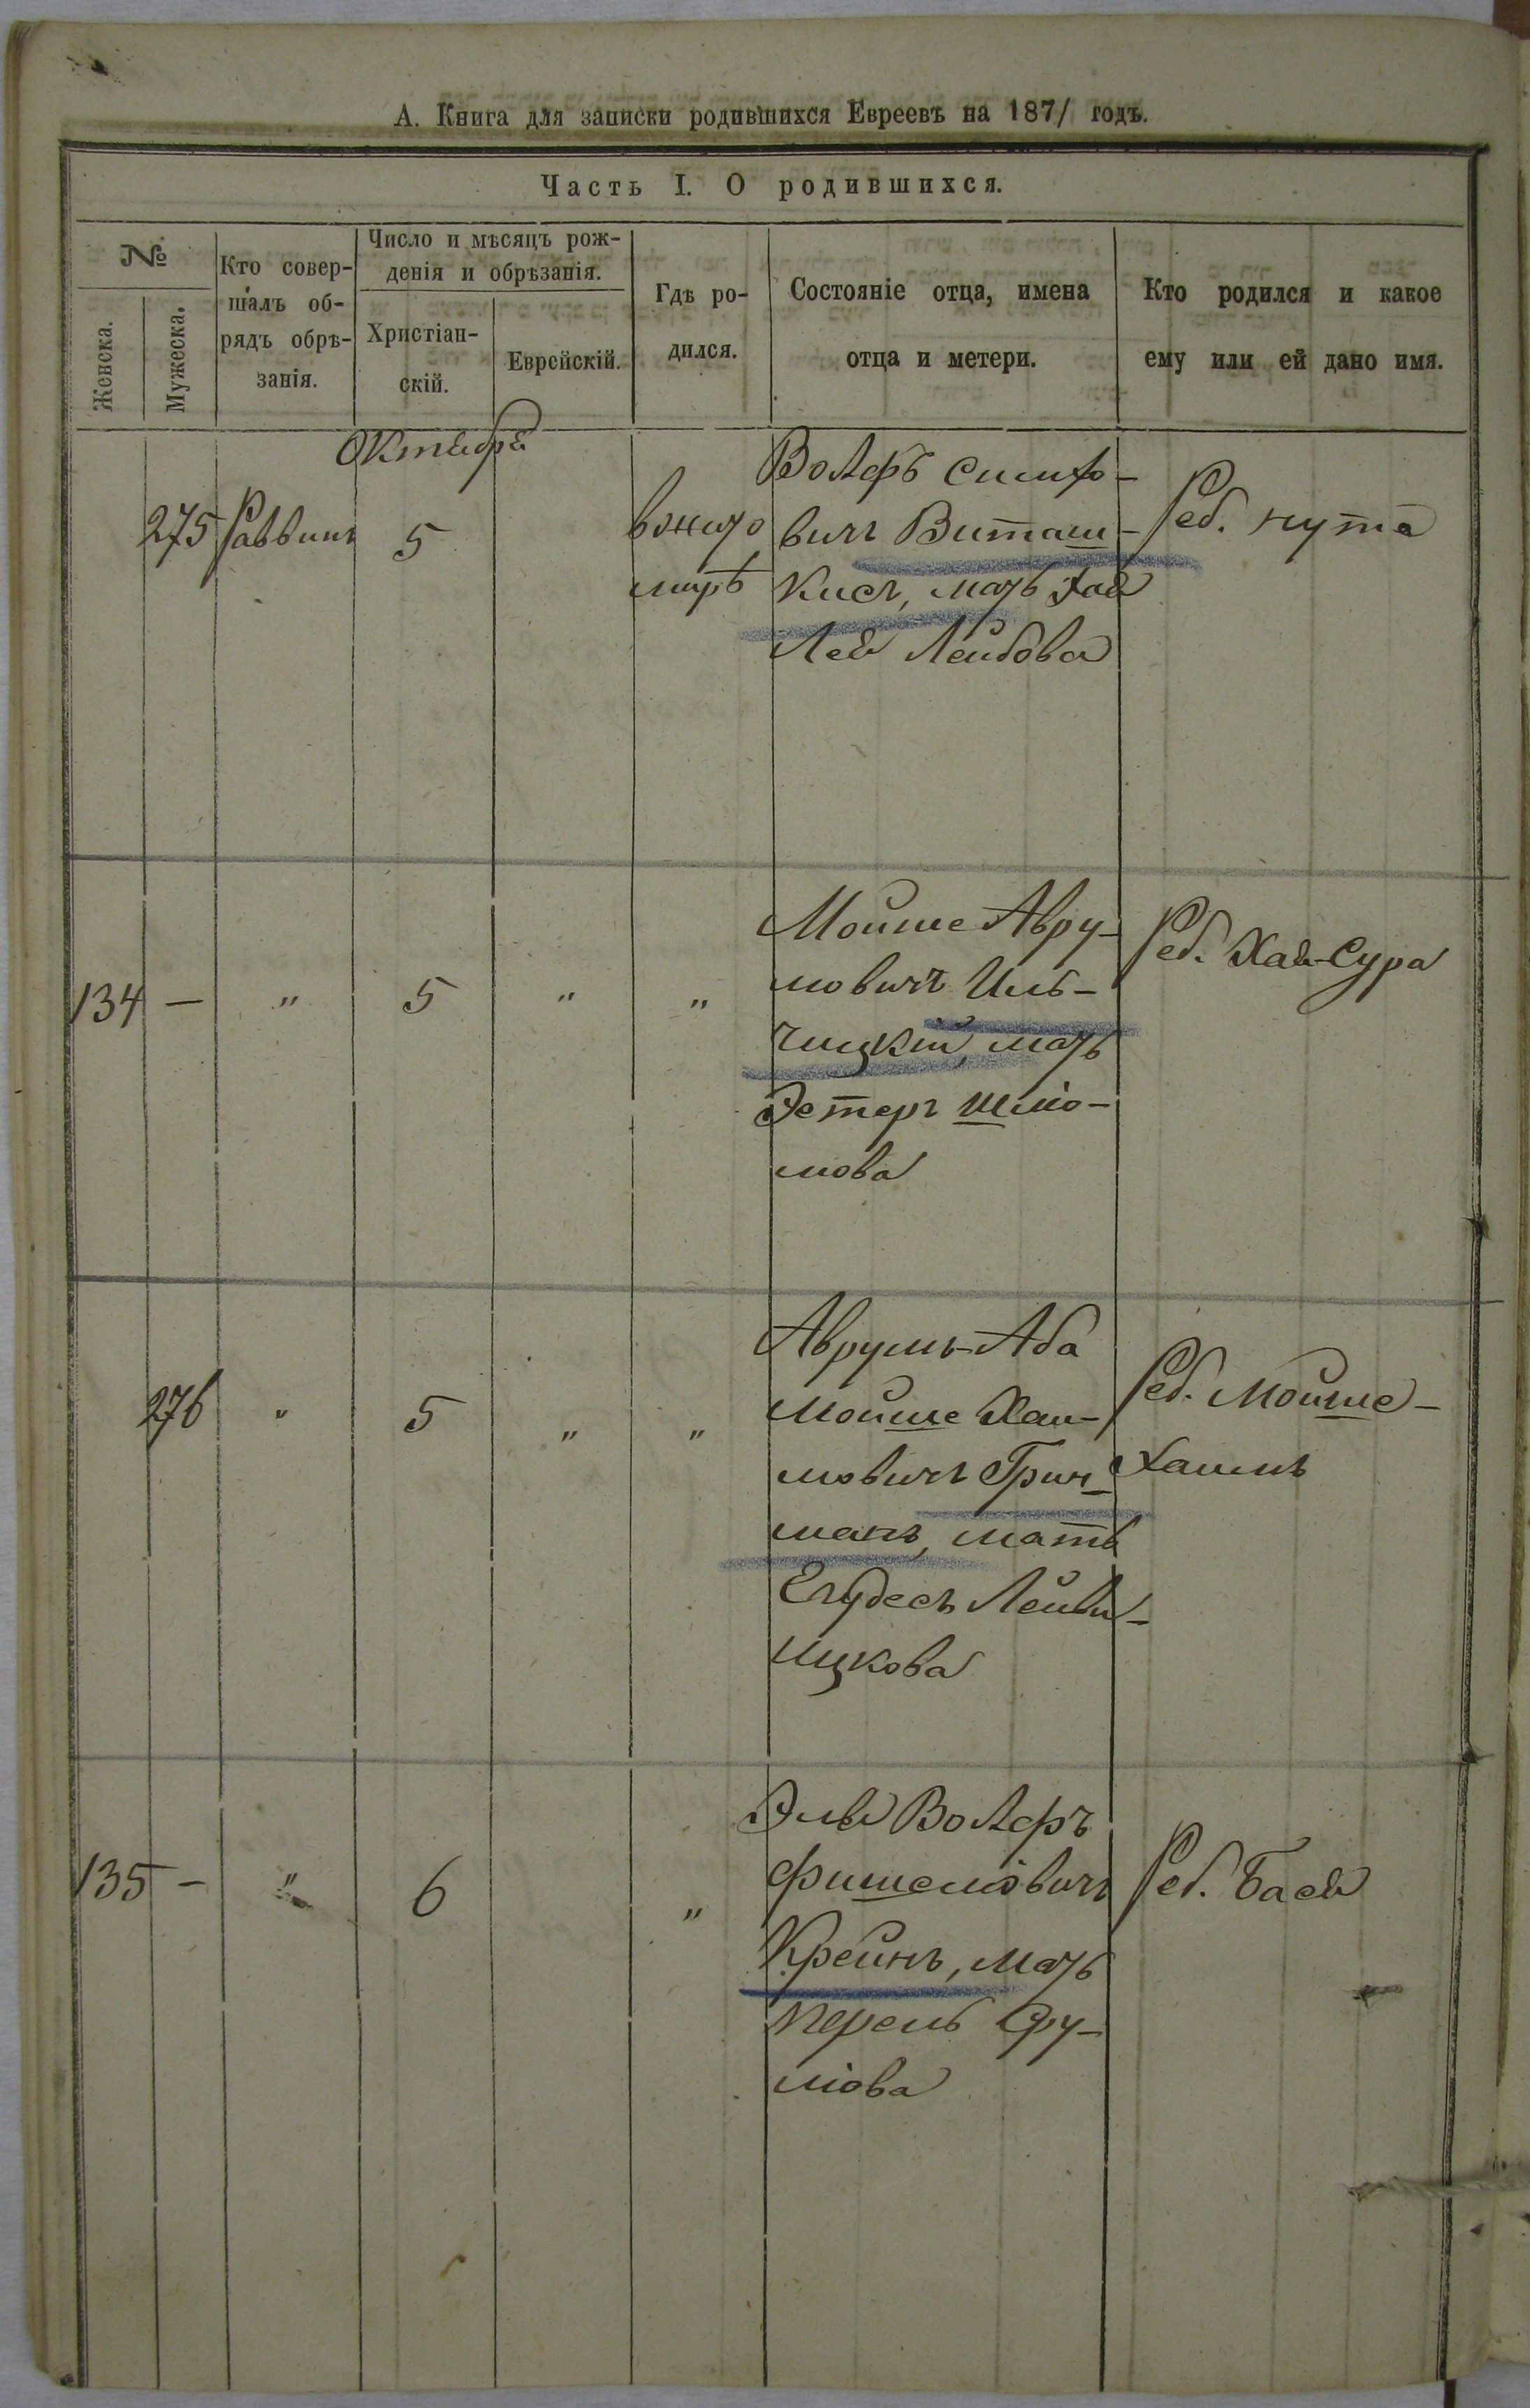 А. Книга для записки родившихся Евреевъ на 1871 годъ.
Часть I. О родившихся.
№
Женска.
Мужеска.
Кто совер-
шалъ об-
рядъ обрѣ-
занія.
Число и мѣсяцъ рож-
денія и обрѣзанія.
Христіан-
скій.
Еврейскій.
Гдѣ ро-
дился.
Состояніе отца, имена
отца и метери.
Кто родился и какое
ему или ей дано имя.
Октября
275 Раввинъ 5
вжито
мирѣ
Вольфъ Симхо-
вичъ Виташ-
кисъ, мать Хая
Лея Лейбова
Реб. нута
134 — " 5 " "
Мойше Авру-
мовичъ Иль-
чицкій, мать
Эстеръ Шліо-
мова
Реб. Хая-Сура
276 " 5 " "
Аврумъ-Аба
Мойше Хаи-
мовичъ Грин-
манъ, мать
Егудесъ Лейви-
Ицкова
Реб. Мойше-
Хаимъ
135 — " 6 "
Эля Вольфъ
Фишеліовичъ
Крейнъ, мать
Перель Сру-
ліова
Реб. Бася